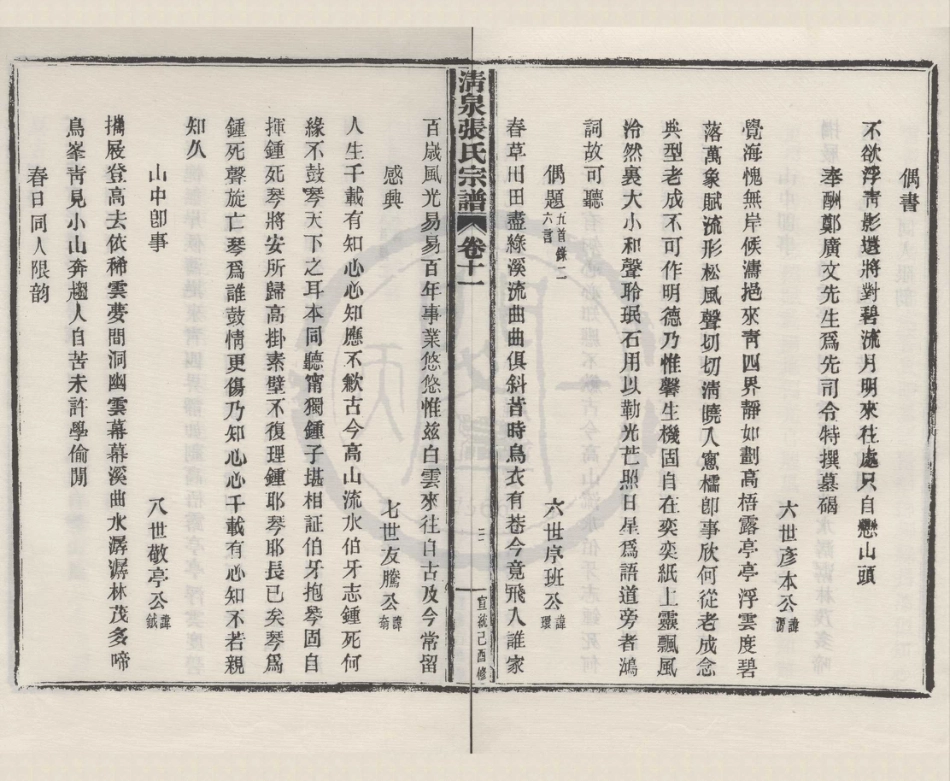 偶書
不欲浮靑影還將對碧流月明來往處只自戀山頭
奉酬鄭廣文先生爲先司令特撰墓碣
六世彥本公諱
覺海愧無岸候濤挹來靑四界靜如劃高梧露亭亭浮雲度碧
落萬象賦流形松風聲切切淸曉入窻櫺卽事欣何從老成念
典型老成不可作明德乃惟馨生機固自在奕奕紙上靈飄風
泠然裏大小和聲聆珉石用以勒光芒照日星爲語道旁者鴻
詞故可聽
偶題五首錄二六言
六世序班公諱環
春草田田盡綠溪流曲曲俱斜昔時烏衣有巷今竟飛入誰家
淸泉張氏宗譜 卷十一 宣統己酉修
百歲風光易易百年事業悠悠惟玆白雲來往自古及今常留
感興
七世友騰公諱
人生千載有知心心知應不歉古今高山流水伯牙志鍾死何
緣不鼓琴天下之耳本同聽甯獨鍾子堪相証伯牙抱琴固自
揮鍾死琴將安所歸高掛素壁不復理鍾耶琴耶長已矣琴爲
鍾死聲旋亡琴爲誰鼓情更傷乃知心心千載有心知不若親
知久
山中卽事
八世敬亭公諱鉞
攜屐登高去依稀雲夢間洞幽雲幕幕溪曲水潺潺林茂多啼
鳥峯靑見小山奔趨人自苦未許學偷閒
春日同人限韵